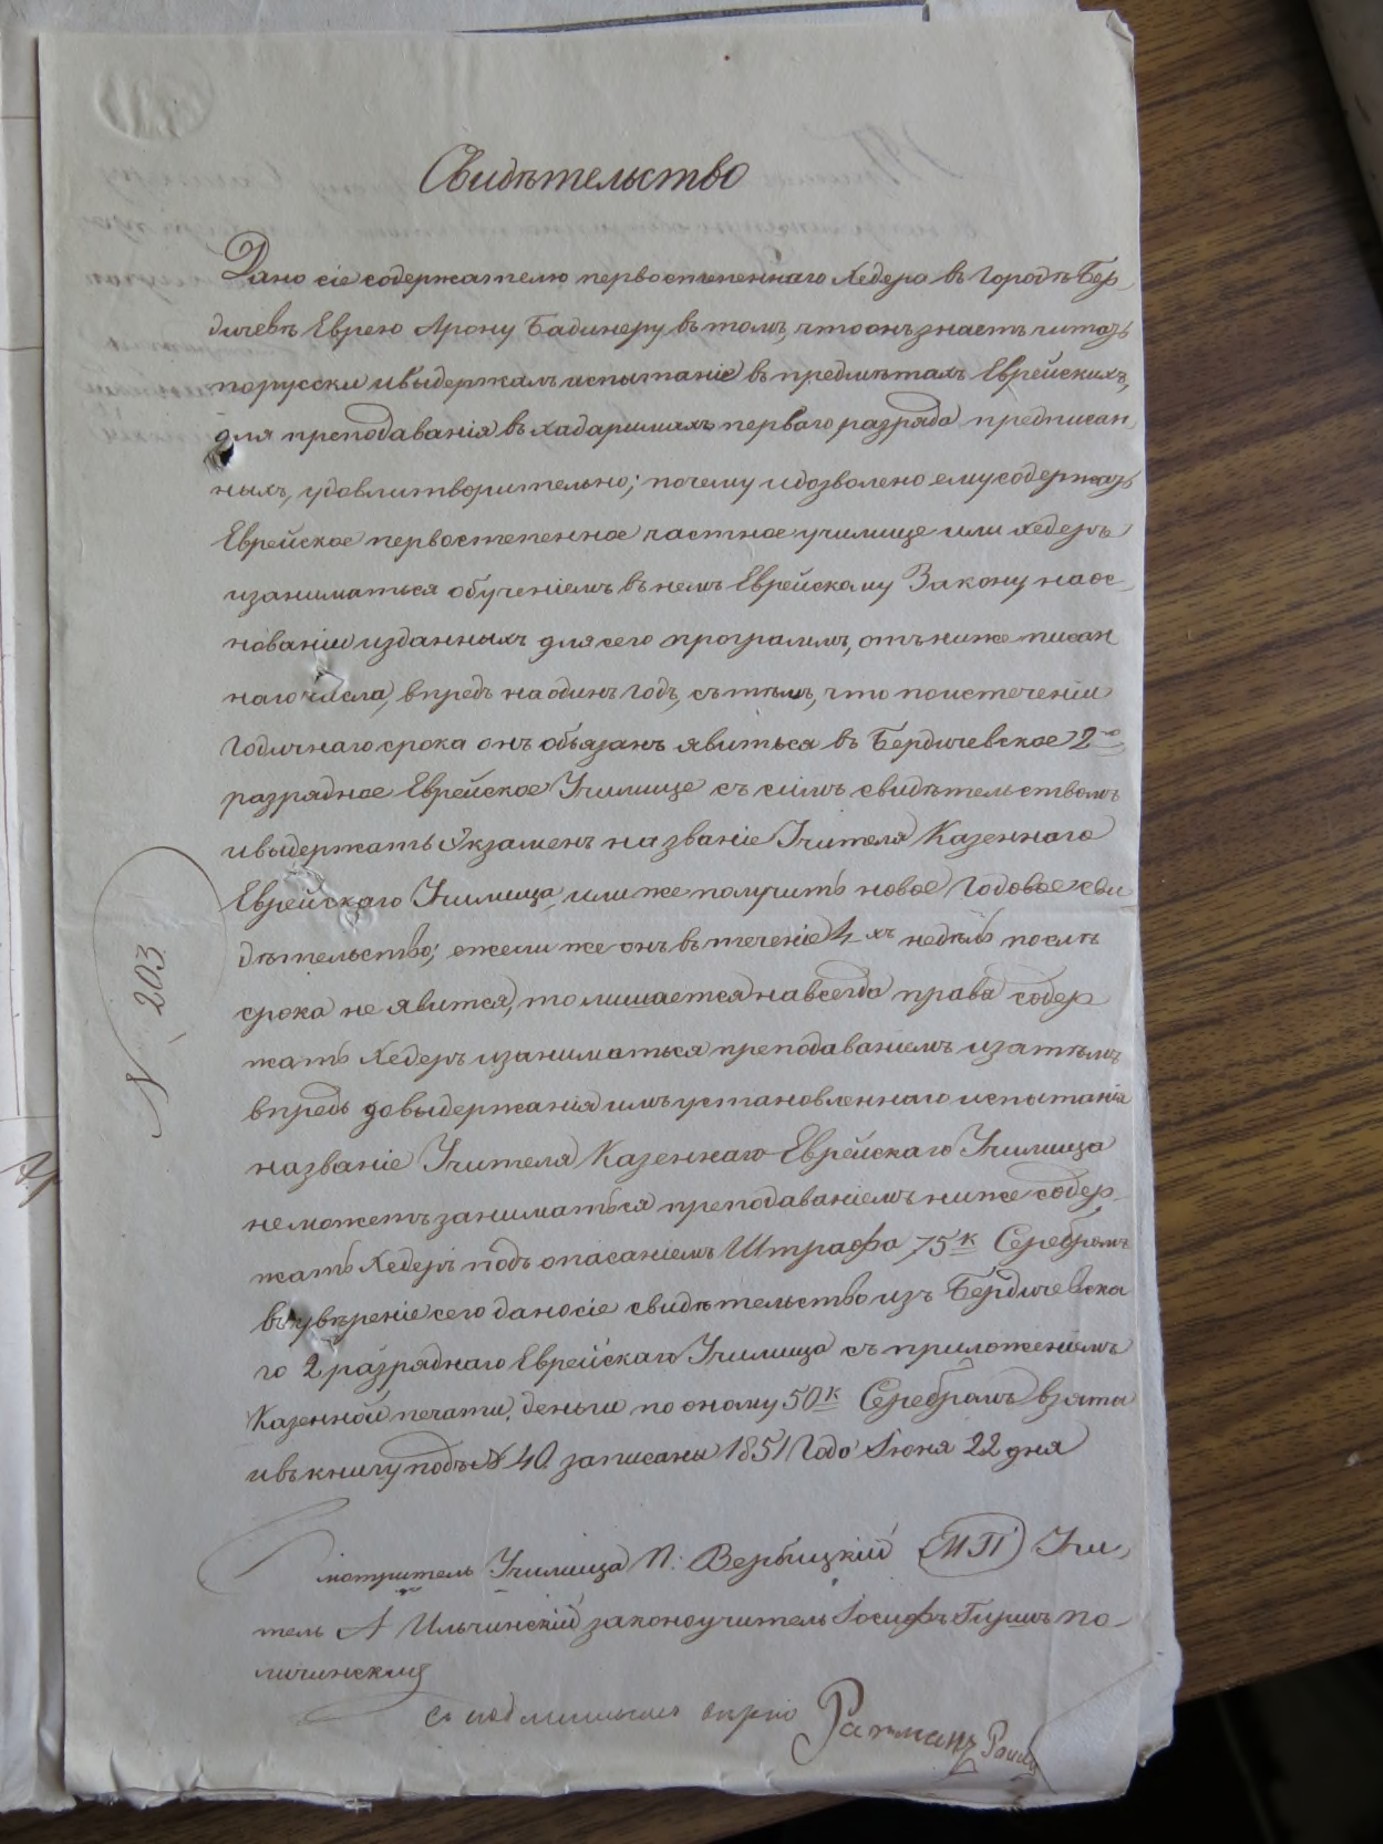 Свидѣтельство
Дано сіе содержателю первостепеннаго Хедера въ Городѣ Бер
дичевѣ Еврею Арону Бадинеру въ томъ, что онъ знаетъ читать
порусски и выдержалъ испытаніе въ предмѣтахъ Еврейскихъ,
для преподаванія въ хадаримахъ перваго разряда предписан
ныхъ, удовлитворительно; почему и дозволено ему содержать
Еврейское первостепенное частное училище или хедеръ
и заниматься обученіемъ въ немъ Еврейскому Закону на ос
нованіи изданныхъ для сего программъ, отъ ниже писан
наго числа, впредь на одинъ годъ, съ тѣмъ, что по истеченіи
Годичнаго срока онъ объязанъ явиться въ Бердичевское 2го
разрядное Еврейское Училище съ симъ свидѣтельствомъ
и выдержать Экзаменъ на званіе Учителя Казеннаго
Еврейскаго Училища, или же получить новое Годовое сви
дѣтельство; ежели же онъ въ теченіе 4хъ недѣль послѣ
срока не явится, то лишается навсегда права содер
жать Хедеръ и заниматься преподаваніемъ и затѣмъ
впредь до выдержанія имъ установленнаго испытанія
на званіе Учителя Казеннаго Еврейскаго Училища
не можетъ заниматься преподаваніемъ ниже содер
жать Хедеръ подъ опасаніемъ Штрафа 75 к Серебромъ
въ увѣреніе сего дано сіе свидѣтельство изъ Бердичевска
го 2 разряднаго Еврейскаго Училища съ приложеніемъ
Казенной печати, деньги по оному 50 к Серебромъ взяты
и въ книгу подъ № 40 записаны 1851 Года Іюня 22 дня
N 203
Смотритель Училища П: Вербицкій (МП) Учи
тель А Ильчинскій законоучитель Іосифъ Гиршъ По
личинскій
Съ подлиннымъ вѣрно Ратманъ